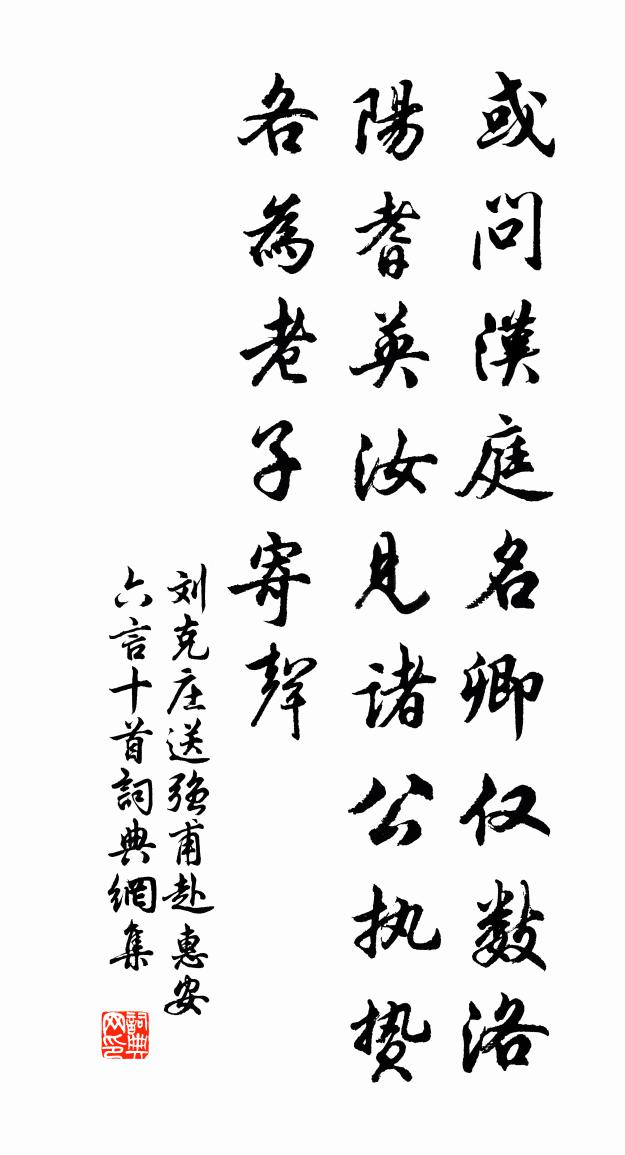 或问漢庭名卿仅数洛
陽耆英汝見诸公执贽
各為老子寄聲
刘克庄送强甫赴惠安
六言十首詞典網集
詞典网印